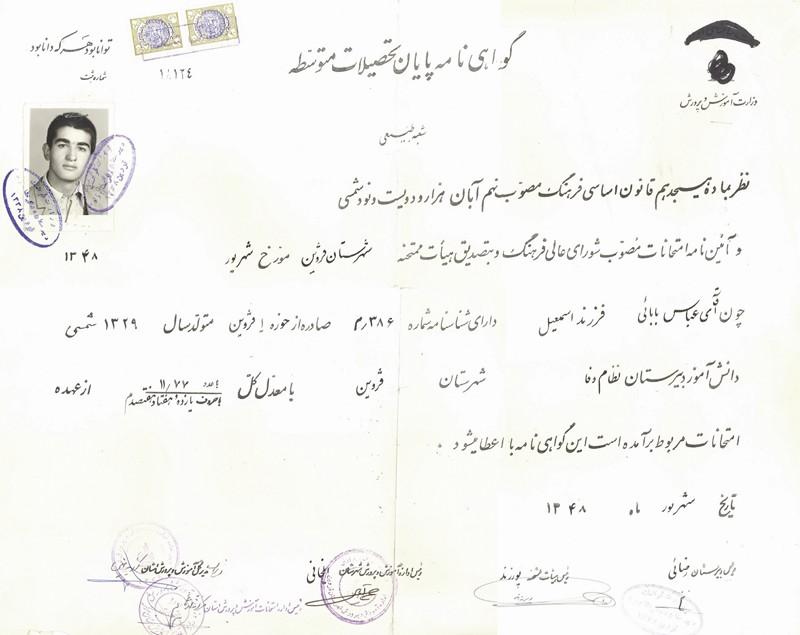 توانا بود هر که دانا بود
شماره ثبت
۱/۱۲۴
گواهی نامه پایان تحصیلات متوسطه
وزارت آموزش و پرورش
شعبه طبیعی
نظر بماده هیجدهم قانون اساسی فرهنگ مصوب نهم آبان هزار و دویست و نود شمسی
و آئین نامه امتحانات مصوب شورای عالی فرهنگ و بتصدیق هیأت ممتحنه شهرستان قزوین مورخ شهریور ۱۳۴۸
چون آقای عباس بابائی فرزند اسمعیل دارای شناسنامه شماره ۳۸۶/م صادره از حوزه ۱ قزوین متولد سال ۱۳۲۹ شمسی
دانش آموز دبیرستان نظام وفا شهرستان قزوین با معدل کل بعدد ۱۱/۷۷ بحروف یازده و هفتاد و هفت صدم از عهده
امتحانات مربوط برآمده است این گواهی نامه با اعطا میشود .
تاریخ شهریور ماه ۱۳۴۸
رئیس دبیرستان رضائی
رئیس هیأت ممتحنه پورزند
رئیس اداره آموزش و پرورش شهرستان
مدیر کل آموزش و پرورش استان
رئیس اداره امتحانات آموزش و پرورش استان